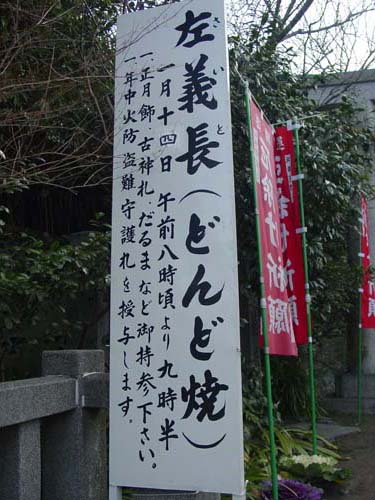 左義長（どんど焼）
さいと
一月十四日 午前八時頃より九時半
一、正月飾・古神札・だるまなど御持参下さい。
一、年中火防盗難守護札を授与します。
祈願